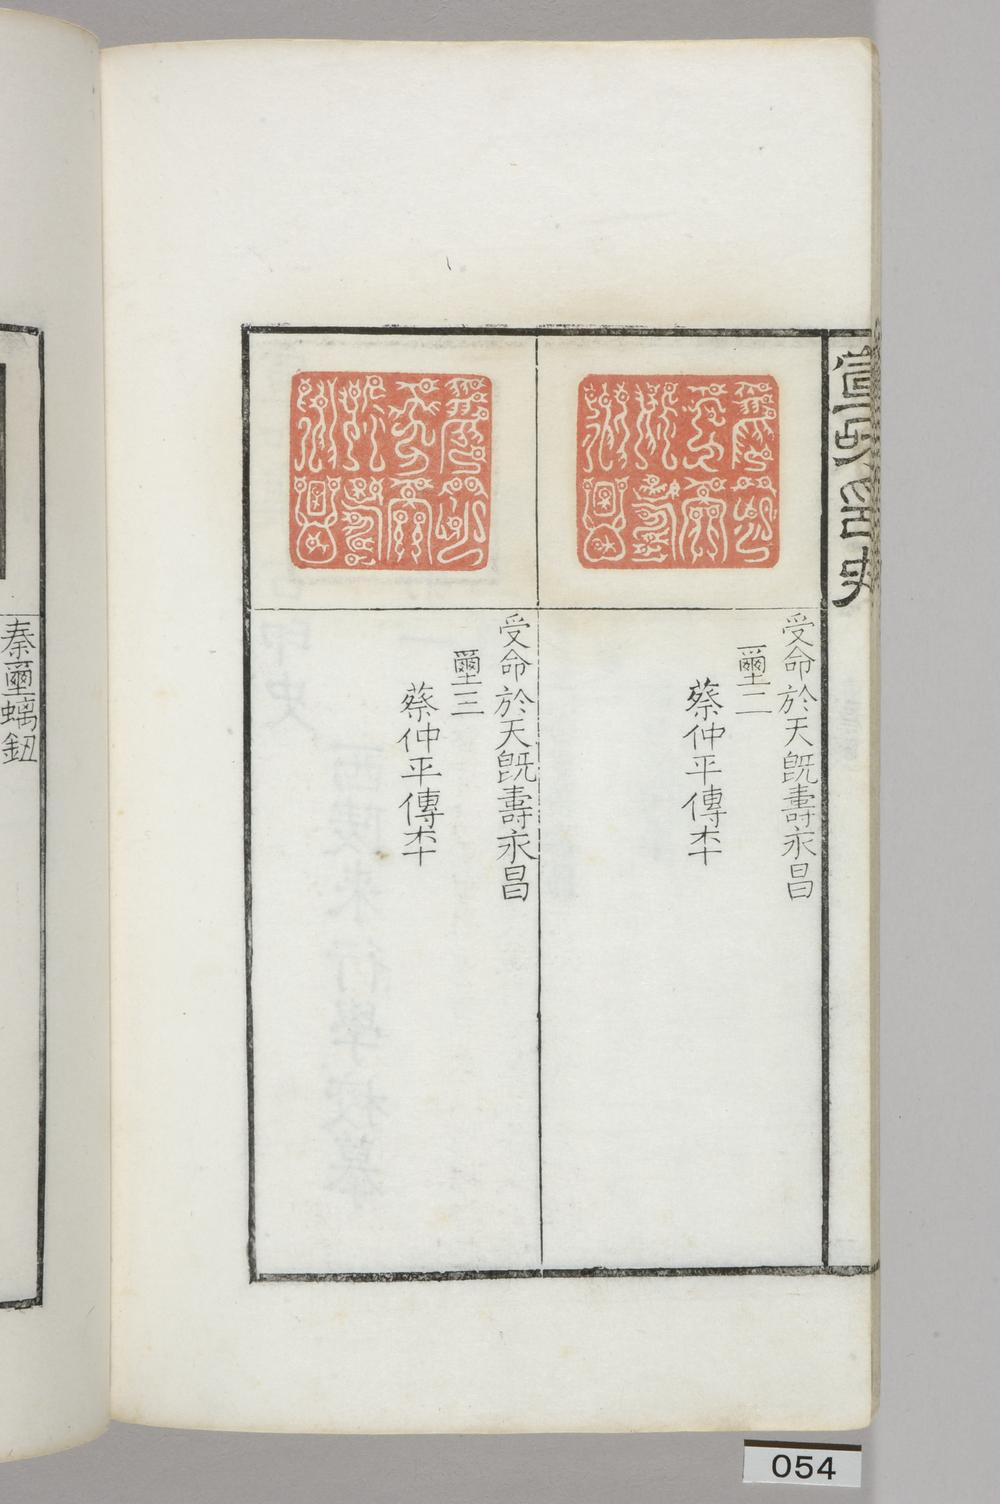 宣和印史
受命於天旣壽永昌
璽二
蔡仲平傳本
受命於天旣壽永昌
璽三
蔡仲平傳本
秦璽螭鈕
054